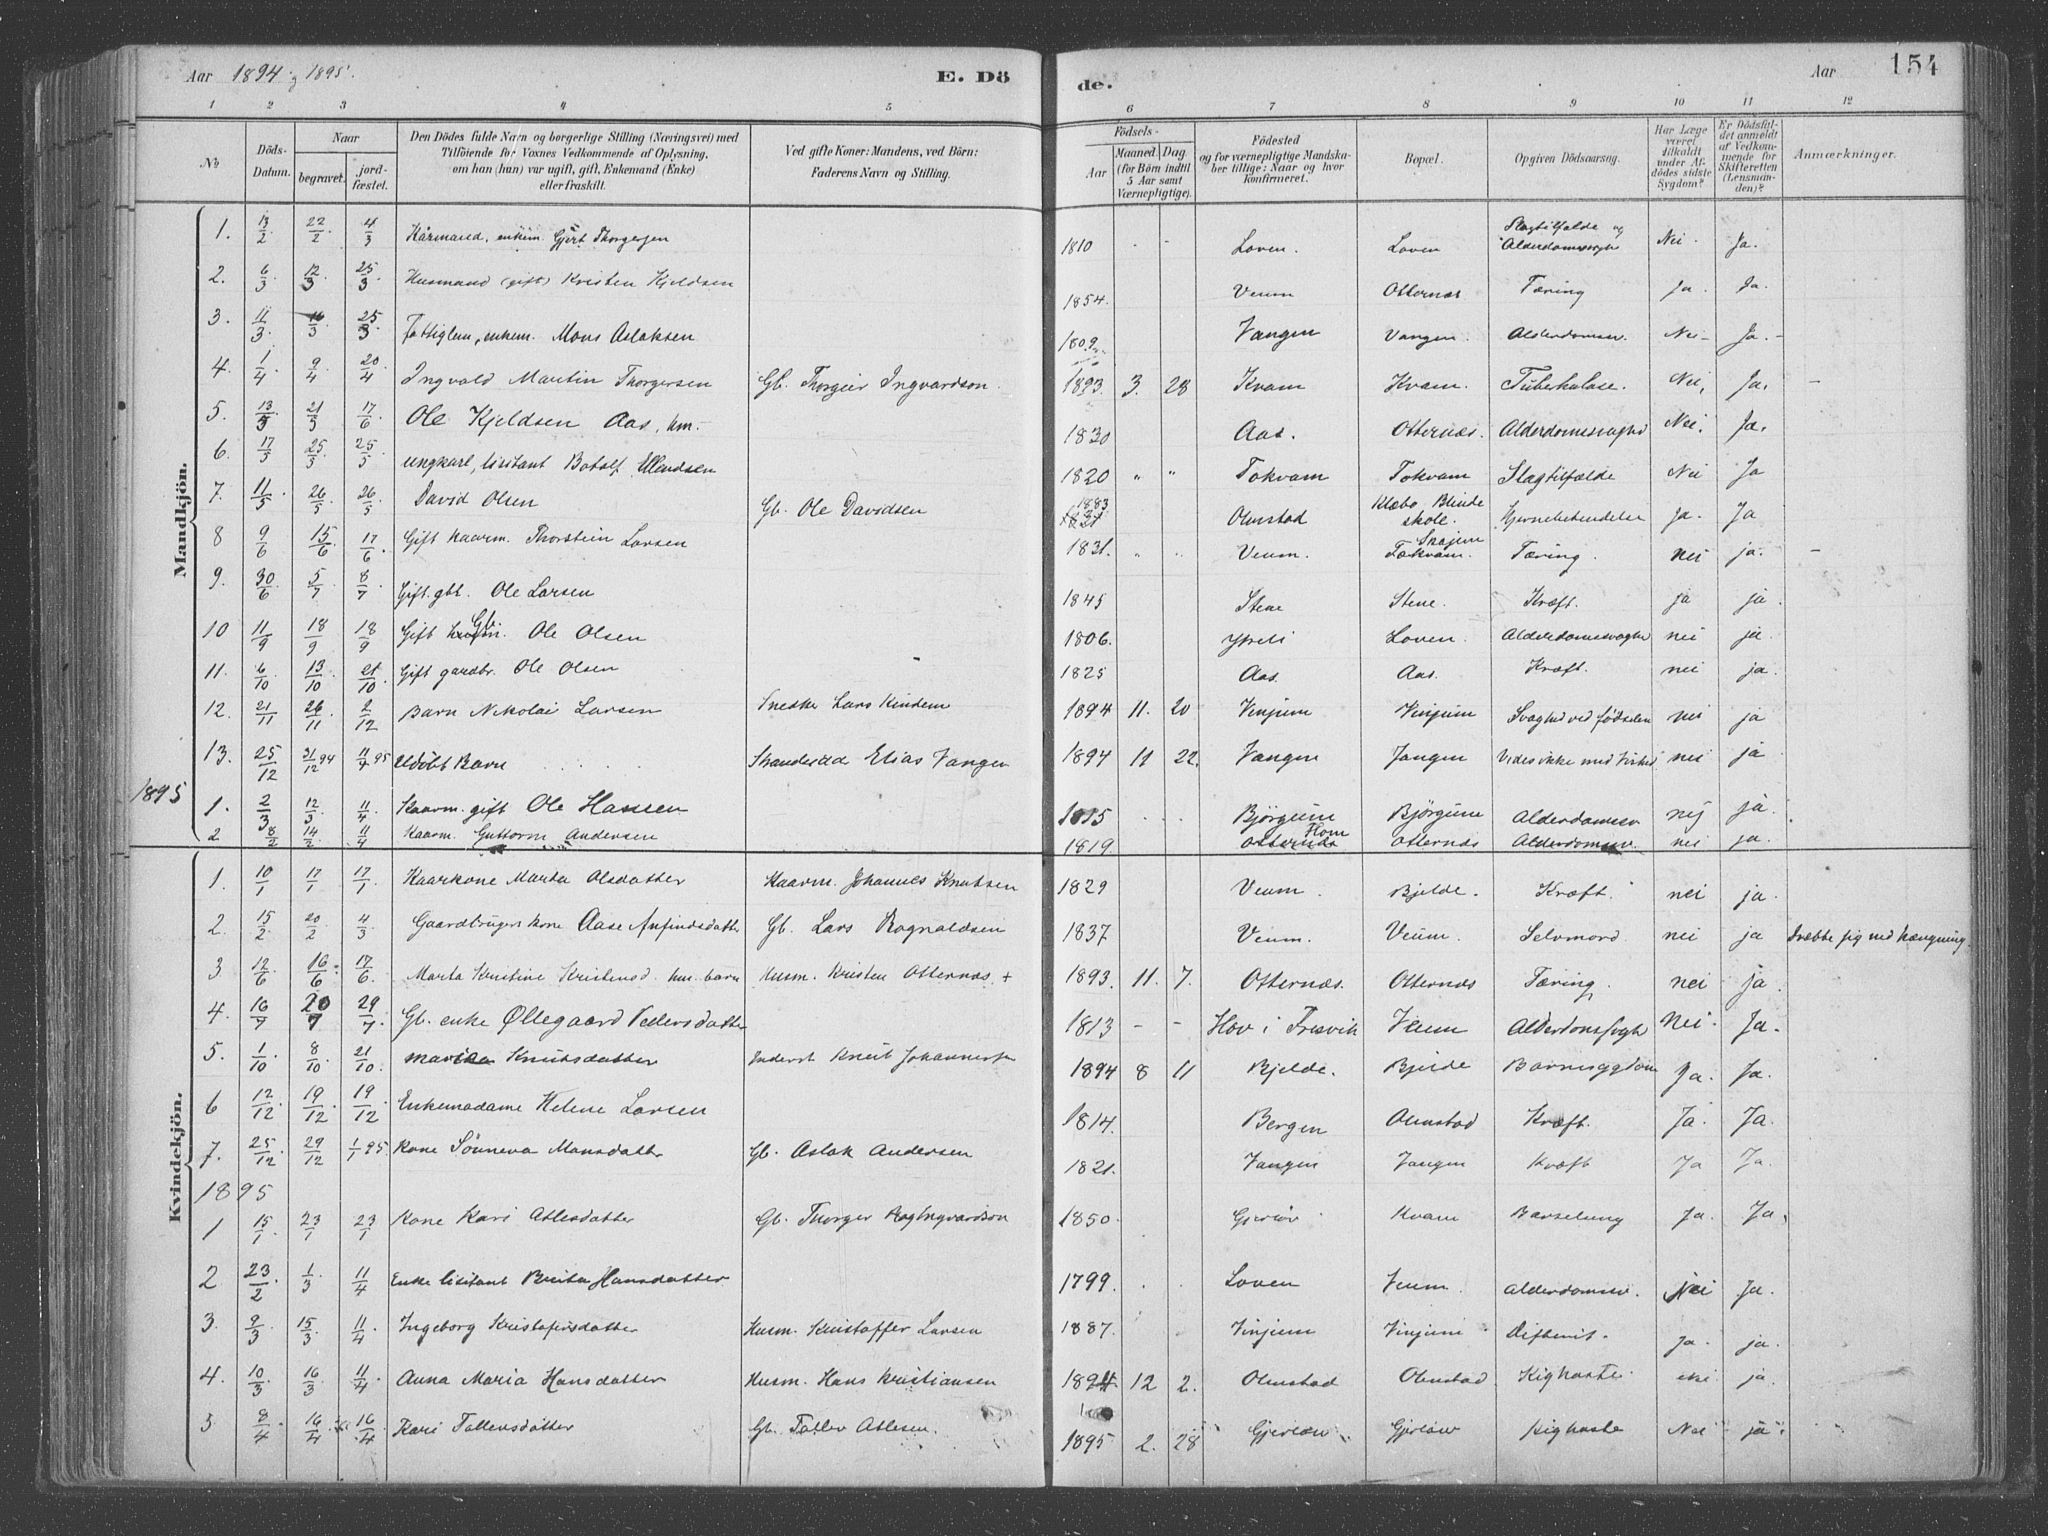 Aar 1894 og 1895.
E. Dö
de.
Aar
154
1 2 3 4 5 6 7 8 9 10 11 12
No
Döds-Datum.
Naar
begravet.
jord-fæstet.
Den Dödes fulde Navn og borgerlige Stilling (Næringsvei) med Tilföiende for Voxnes Vedkommende af Oplysning, om han (hun) var ugift, gift, Enkemand (Enke) eller fraskilt.
Ved gifte Koner: Mandens, ved Börn: Faderens Navn og Stilling.
Födsels-
Aar
Maaned. Dag
(for Börn indtil 5 Aar samt Værnepligtige).
Födested og for værnepligtige Mandska-ber tillige: Naar og hvor konfirmeret.
Bopæl.
Opgiven Dödsaarsag.
Har Læge været tilkaldt under Af-dödes sidste Sygdom?
Er Dödsfal-det anmeldt af Vedkom-mende for Skifteretten (Lensman-den)?
Anmærkninger.
Mandkjön.
1. 13/2 22/2 4/3 Kårmand, enkem. Gjert Thorgersen 1810 - - Loven. Loven Slagtilfælde og Alderdomssvagh Nei. Ja.
2. 6/3 12/3 25/3 Husmand (gift) Kristen Kjeldsen 1854. Veum Otternæs Tæring Ja. Ja.
3. 11/3 16/3 25/3 Fattiglem, enkem. Mons Aslaksen 1809. Vangen Vangen. Alderdomssv. Nei - Ja. -
4. 1/4 9/4 20/4 Ingvald Martin Thorgersen Gb. Thorgier Ingvardson. 1893. 3. 28 Kvam Kvam. Tuberkulose. Nei, Ja. -
5. 13/5 21/5 17/6 Ole Kjeldsen Aas, hm. 1830 Aas. Otternæs. Alderdomssvaghed Nei. Ja.
6. 17/5 25/5 25/5 ungkarl, lisitant Botolf Ellendsen 1820 " " Tokvam Tokvam Slagtilfælde Nei Ja
7. 11/5 26/5 26/5 David Olsen Gb. Ole Davidsen 1883 Olmstad Klæbo Blinde skole. Hjernebetændelse ja. Ja
8 9/6 15/6 17/6 Gift kaarm. Thorstein Larsen 1831. " " Veum. Tokvam. Tæring. nei ja. -
9. 30/6 5/7 8/7 Gift gbr. Ole Larsen 1845 Stene Stene. Kræft. ja ja.
10 11/9 18/9 18/9 Gift Ole Olsen 1806. Loven. Alderdomssvaghed nei ja.
11. 6/10 13/10 21/10 Gift gardbr. Ole Olsen 1825 Aas. Aas. Kræft. nei ja.
12. 21/11 26/11 2/12 Barn Nikolai Larsen Snedker Lars Kindem 1894 11. 20 Vinjum Vinjum Svaghed ved fødselen nei ja
13. 25/12 31/12 94 11/4 95 Udöbt Barn Strandsidd Elias Vangen 1894 12 22. Vangen Vangen Vides ikke med Vished nei ja
1895
1. 2/3 12/3 11/4 Kaarm. gift Ole Hansen 1815 Bjørgum Bjørgum Alderdomssv nej ja.
2 8/2 14/2 11/4 Kaarm. Guttorm Andersen 1819. Otternæs Otternæs Alderdomssv. nei ja.
Kvindekjön.
1. 10/1 17/1 17/1 Kaarkone Marta Olsdatter Kaarm. Johannes Knutsen 1829 Veum. Bjelde. Kræft. nei ja.
2. 15/2 20/2 4/3 Gaardbrugers kone Aase Anfindsdatter Gb. Lars Rognaldsen 1837 Veum. Veum. Selvmord. nei ja Dræbte sig ved hængning.
3. 12/6 16/6 17/6. Marta Kristine Kristensd. hm. barn Husm. Kristen Otternæs + 1893. 11. 7. Otternæs. Otternæs Tæring. nei ja.
4. 16/7 20/7 29/7. Gb. enke Øllegaard Pedersdatter 1813 - - Hov i Fresvik Veum Alderdomssvagh Nei. Ja.
5. 1/10 8/10 21/10. Marita Knutsdatter Inderst Knut Johannessen 1894 8 11 Bjelde. Bjelde Barnesygdom Ja. Ja.
6 12/12. 19/12. 19/12 Enkemadame Helene Larsen 1814. Bergen Olmstad Kræft. Ja. Ja.
7. 25/12 29/12 1/1 95 Kone Sönneva Monsdatter Gb. Aslak Andersen 1821. Vangen Vangen Kræft Ja Ja.
1895
1 15/1 23/1 23/1 Kone Kari Atlesdatter Gb. Thorger Ingvardson 1850. Gjerløv Kvam Barselseng Ja. Ja.
2 23/2. 1/3 11/4 Enke lisitant Brita Hansdatter 1799. Loven Veum. Alderdomssv. Nei Ja.
3. 9/3 15/3 11/4. Ingeborg Kristofersdatter Husm. Kristoffer Larsen 1887. Vinjum Vinjum Difterit. Ja. ja
4. 10/3 16/3 11/4 Anna Maria Hansdatter Husm. Hans Kristiansen 1894. 12 2. Olmstad Olmstad. Kighoste. nei ja.
5 8/4. 16/4 16/4 Kari Tollevsdatter Gb. Tollev Atlesen. 1895 2. 28 Gjerløw Gjerløw Kighoste Nei ja.